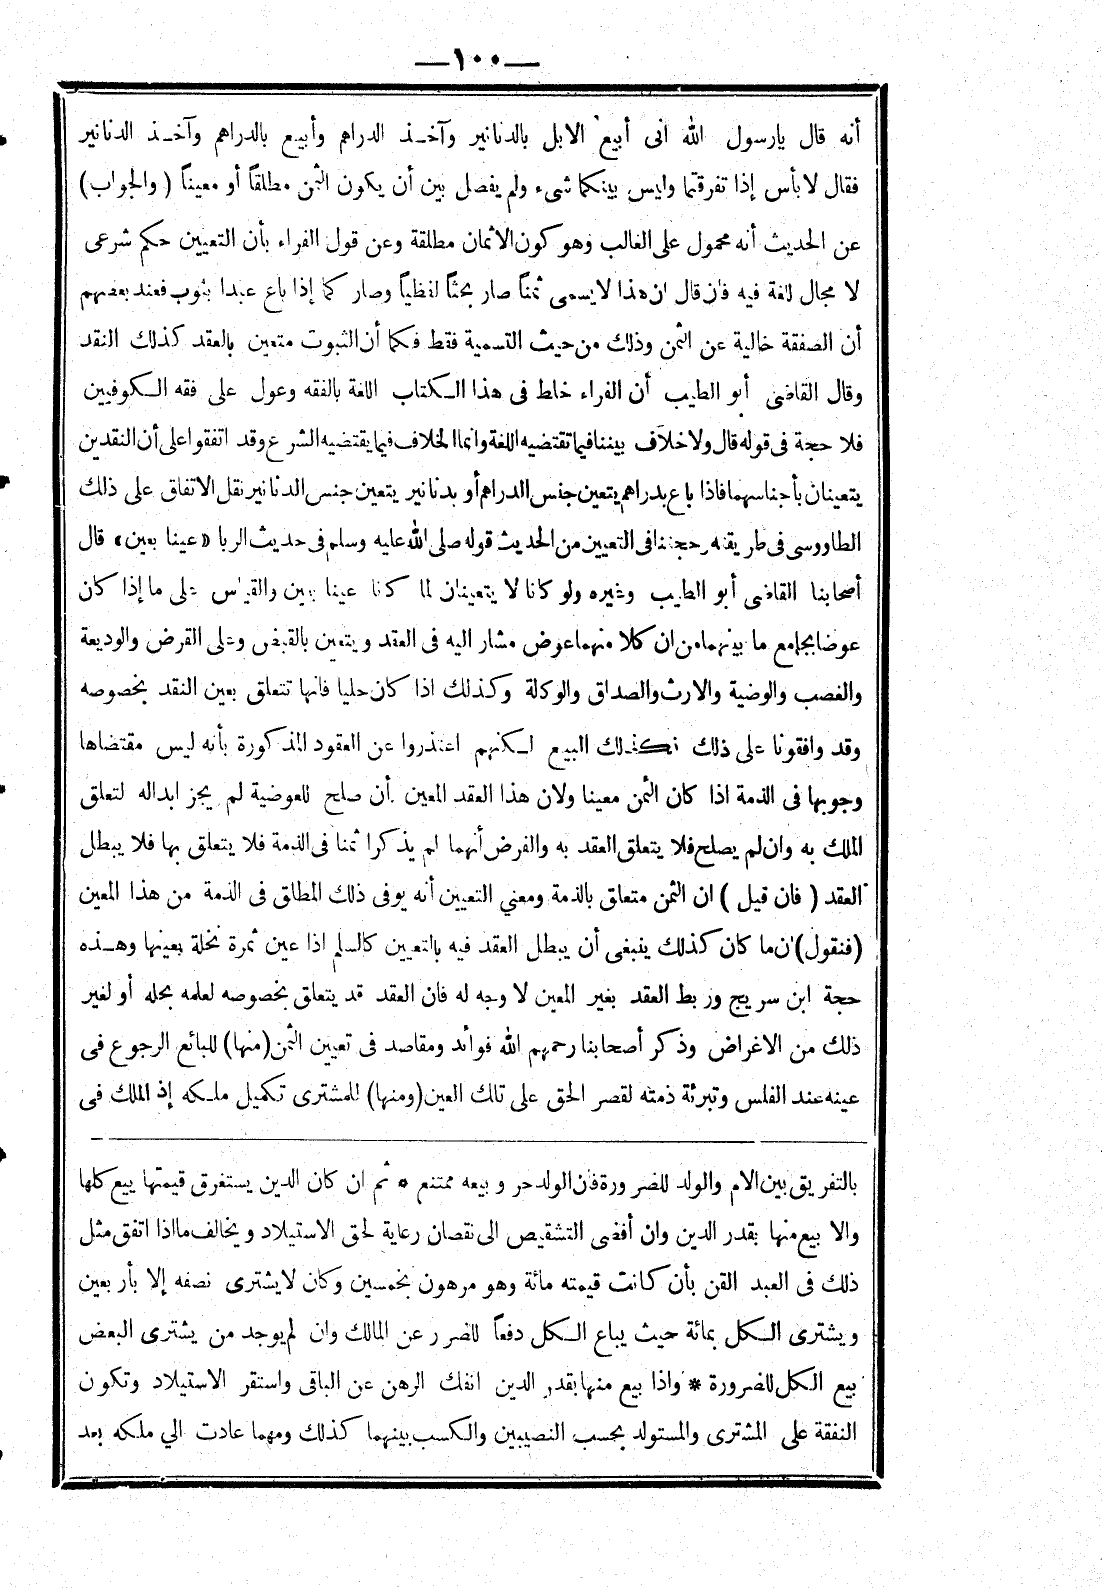 —١٠٠—
أنه قال يارسول الله انى أبيع الابل بالدنانير وآخـذ الدراهم وأبيع بالدراهم وآخـذ الدنانير
فقال لا بأس إذا تفرقتما وليس بينكما شىء ولم يفصل بين أن يكون الثمن مطلقاً أو معيناً (والجواب)
عن الحديث أنه محمول على الغالب وهو كون الاثمان مطلقة وعن قول الفراء بأن التعيين حكم شرعى
لا مجال للغة فيه فان قال ان هذا لا يسمى ثمناً صار بحثاً لفظياً وصار كما إذا باع عبدا بثوب فعند بعضهم
أن الصفقة خالية عن الثمن وذلك من حيث التسمية فقط فكما أن الثبوت متعين بالعقد كذلك النقد
وقال القاضى أبو الطيب أن الفراء خلط فى هذا الـكتاب اللغة بالفقه وعول على فقه الـكوفيين
فلا حجة فى قوله قال ولا خلاف بيننا فيما تقتضيه اللغة وانما الخلاف فيما يقتضيه الشرع وقد اتفقوا على أن النقدين
يتعينان بأجناسهما فاذا باع بدراهم يتعين جنس الدراهم أو بدنانير يتعين جنس الدنانير نقل الاتفاق على ذلك
الطاووسى فى طريقته وحجتنا فى التعيين من الحديث قوله صلى الله عليه وسلم فى حديث الربا «عينا بعين» قال
أصحابنا القاضى أبو الطيب وغيره ولو كانا لا يتعينان لما كانا عينا بعين والقياس على ما إذا كان
عوضا بجامع ما بينهما من ان كلا منهما عوض مشار اليه فى العقد ويتعين بالقبض وعلى القرض والوديعة
والغصب والوصية والارث والصداق والوكلة وكذلك اذا كان حليا فانها تتعلق بعين النقد بخصوصه
وقد وافقونا على ذلك فكذلك البيع لـكنهم اعتذروا عن العقود المذكورة بأنه ليس مقتضاها
وجوبها فى الذمة اذا كان الثمن معينا ولان هذا العقد المعين أن صلح للعوضية لم يجز ابداله لتعلق
الملك به وان لم يصلح فلا يتعلق العقد به والفرض أنهما لم يذكرا ثمنا فى الذمة فلا يتعلق بها فلا يبطل
العقد (فان قيل) ان الثمن متعلق بالذمة ومعني التعيين أنه يوفى ذلك المطلق فى الذمة من هذا المعين
(فنقول) ان ما كان كذلك ينبغى أن يبطل العقد فيه بالتعيين كالسلم اذا عين ثمرة نخلة بعينها وهـذه
حجة ابن سريج وربط العقد بغير المعين لا وجه له فان العقد قد يتعلق بخصوصه لعلمه بحله أو لغير
ذلك من الاغراض وذكر أصحابنا رحمهم الله فوائد ومقاصد فى تعيين الثمن (منها) للبائع الرجوع فى
عينه عند الفلس وتبرئة ذمته لقصر الحق على تلك العين (ومنها) للمشترى تكميل ملـكه إذ الملك فى
بالتفريق بين الام والولد للضرورة فان الولد حر وبيعه ممتنع * ثم ان كان الدين يستغرق قيمتها بيع كلها
والا بيع منها بقدر الدين وان أفضى التشقيص الى نقصان رعاية لحق الاستيلاد ويخالف ما اذا اتفق مثل
ذلك فى العبد القن بأن كانت قيمته مائة وهو مرهون بخمسين وكان لا يشترى نصفه إلا بأربعين
ويشترى الـكل بمائة حيث يباع الـكل دفعاً للضرر عن المالك وان لم يوجد من يشترى البعض
بيع الـكل للضرورة * واذا بيع منها بقدر الدين انفك الرهن عن الباقى واستقر الاستيلاد وتكون
النفقة على المشترى والمستولد بحسب النصيبين والـكسب بينهما كذلك ومهما عادت الي ملكه بعد